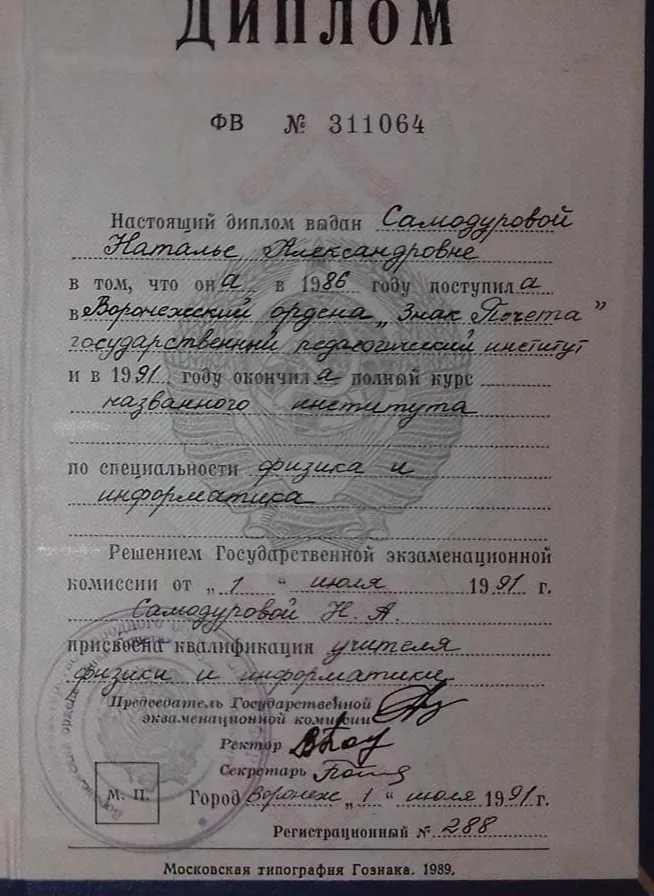 ДИПЛОМ
ФВ № 311064
Настоящий диплом выдан Самодуровой
Наталье Александровне
в том, что она в 1986 году поступила
в Воронежский ордена „Знак Почета”
государственный педагогический институт
и в 1991 году окончила полный курс
названного института
по специальности физика и
информатика
Решением Государственной экзаменационной
комиссии от „1“ июля 1991 г.
Самодуровой Н. А.
присвоена квалификация учителя
физики и информатики
Председатель Государственной
экзаменационной комиссии
Ректор
Секретарь
М. П. Город Воронеж „1“ июля 1991 г.
Регистрационный № 288
Московская типография Гознака. 1989.